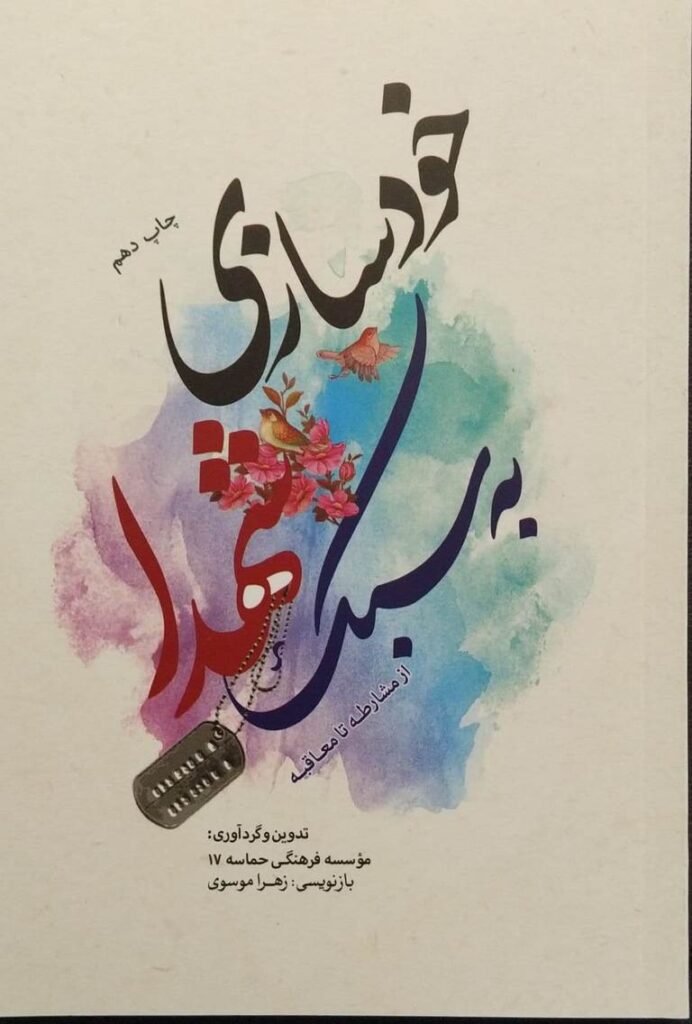 خودسازی
چاپ دهم
به سبک
شهدا
از مشارطه تا معاقبه
تدوین و گردآوری:
مؤسسه فرهنگی حماسه ۱۷
بازنویسی: زهرا موسوی